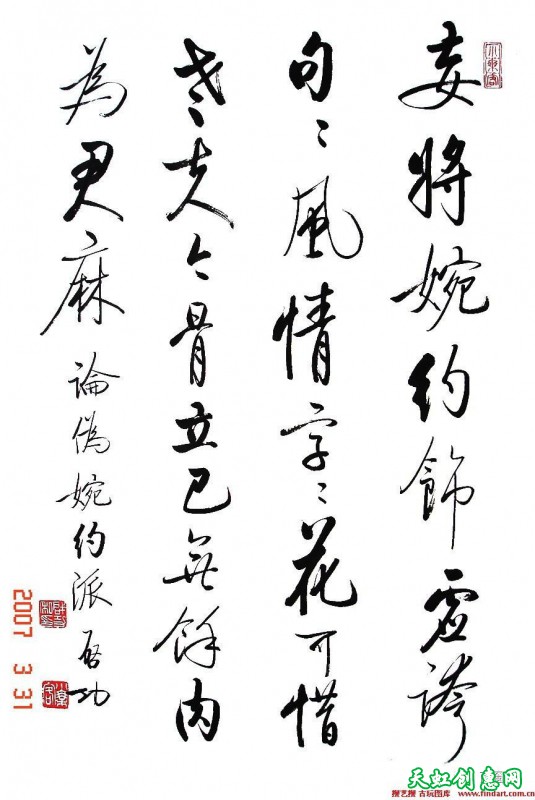 妄將婉約飾虛誇
句〻風情字〻花可惜
老夫今骨立已無餘肉
為君麻 論偽婉約派 启功
2007 3 31
天虹创意网
搜艺搜 古玩图库 www.findart.com.cn